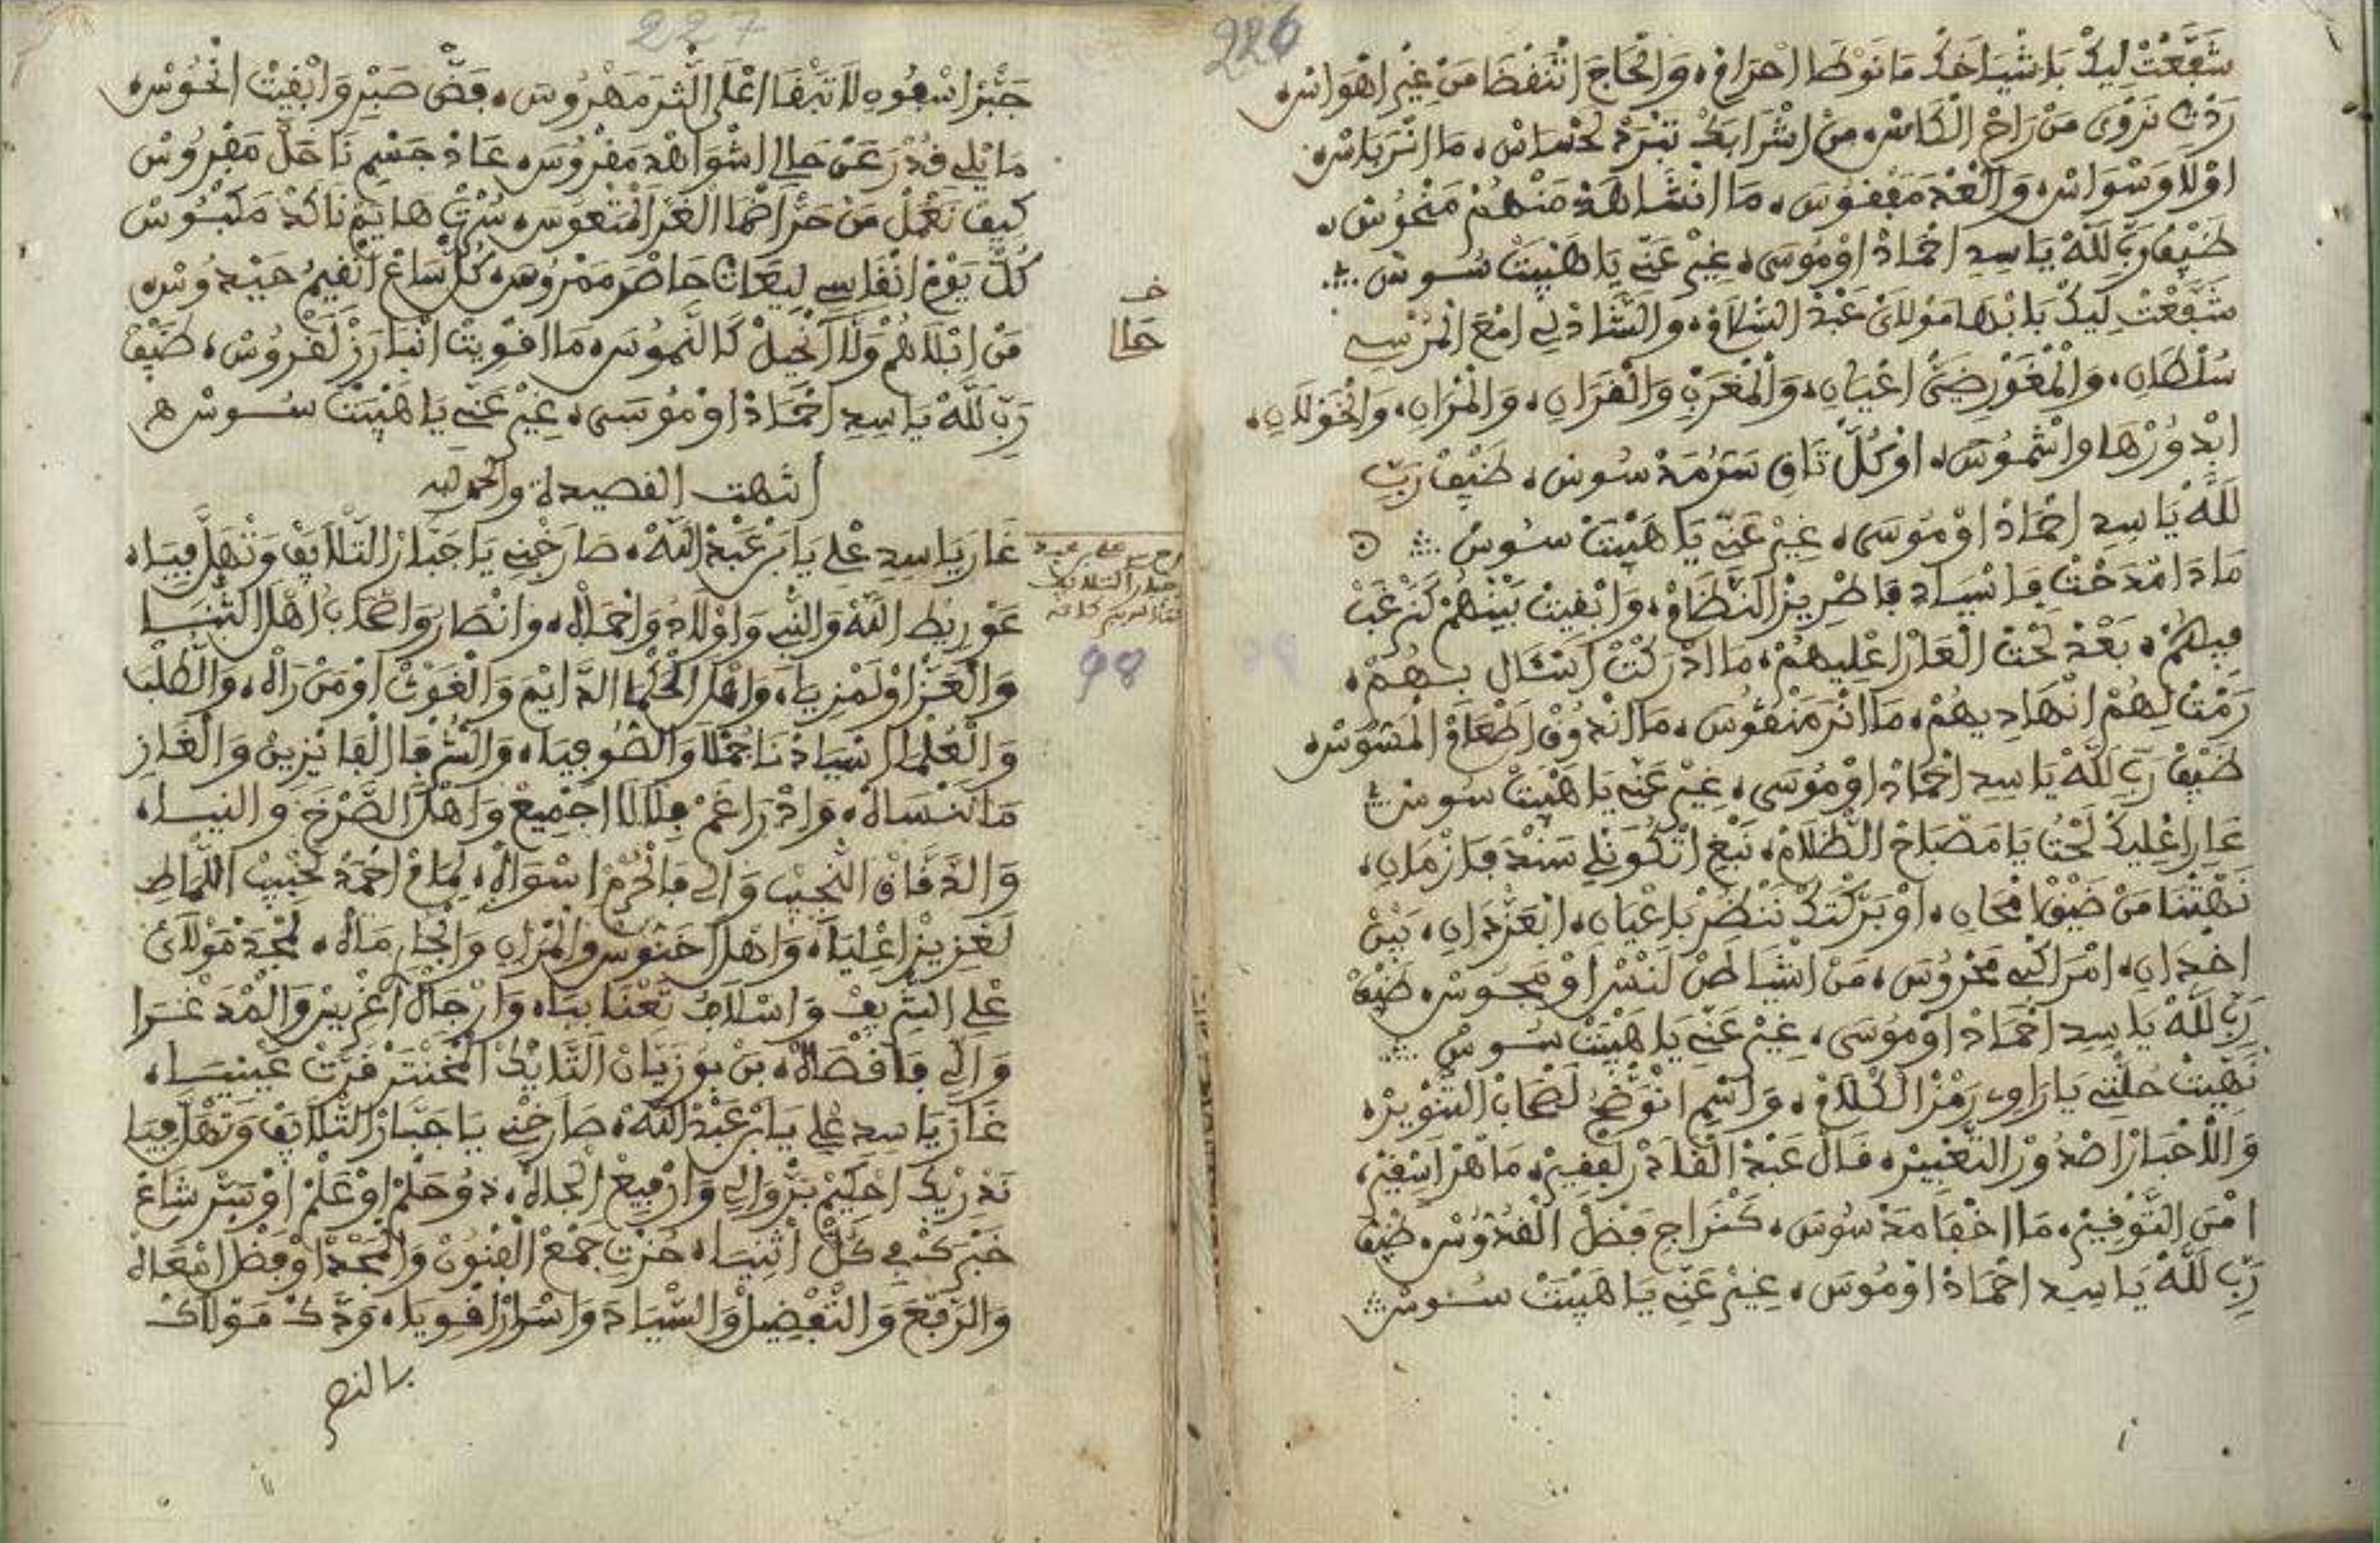 226
شَفَّعْتْ لِيكْ بَاشْيَاخَكْ مَانَوْطَا احْرَامْ، وَالْحَاجَ انْتَفْضَا مَنْ غِيرْ اهْوَاسْ،
رَدْتِ نَرْوَى مَنْ رَاحْ الْكَاسْ، مِنْ اشْرَابَكْ تَبْرَدْ لَحْسَاسْ، مَا انْرَ بَاسْ،
اوْلَا وَسْوَاسْ، وَالْعَدْ مَعْفُوسَ، مَا انْشَاهَدْ مَنْهُمْ مَنْحُوسْ،
ضَيْفْ رَبِّ لَلَّهْ يَا سِيدِ احْمَادْ اوْمُوسَى، غِيرْ عَنِّي يَا هَيْبَتْ سُوسْ
شَفَّعْتْ لِيكْ بَابْهَا مَوْلَايْ عَبْدْ السَّلَامْ، وَالشَّادْلِي امْعَ الْمُرْسِي
سُلْطَانِ، وَالْمَغْوِرِ ضَيَّ اعْيَانِ، وَالْمَغْرَبِ وَالْقَرَانِ، وَالْمَزَانِ، وَالْخَوْلَانِ،
ابْدُورْهَا وَاشْمُوسَ، اوْكُلّ تَاقِ سَرْمَدْ سُوسْ، ضَيْفْ رَبِّ
لَلَّهْ يَا سِيدِ احْمَادْ اوْمُوسَى، غِيرْ عَنِّي يَا هَيْبَتْ سُوسْ
مَادَا مْدَحْتْ فَاسْيَادِ فَاطْرِيزْ النّظَامْ، وَابْقِيتْ بَيْنْهُمْ كَنَرْغَبْ
فِيهُمْ، بَعْدْ لَحْتْ الْعَارْ اعْلِيهُمْ، مَا ادْرَكْتْ ابْشَالْ بِهُمْ،
رَمْتْ لِهُمْ انْهَادِيهُمْ، مَا انْرَ مَنْقُوسَ، مَا انْدُوقْ اطْعَامْ الْمَسُّوسْ،
ضَيْفْ رَبِّ لَلَّهْ يَا سِيدِ احْمَادْ اوْمُوسَى، غِيرْ عَنِّي يَا هَيْبَتْ سُوسْ
عَارِ اعْلِيكْ لَحْتُ يَا مَصْبَاحْ الظّلَامْ، نَبْغِ اتْكُونْ لِي سَنْدْ فَازْمَانِ،
نَهْتْنَا مَنْ ضَيْقْ امْحَانِ، اوْبَرَّكْتَكْ نَنْظَرْ بَاعْيَانِ، ابْعَزَّدَانِ، بَيْنْ
اخْدَانِ، امْرَاكْبِي مَحْرُوسَ، مَنْ اشْيَاطَنْ لَنْسْ اوْمَجُوسْ، ضَيْفْ
رَبِّ لَلَّهْ يَا سِيدِ احْمَادْ اوْمُوسَى، غِيرْ عَنِّي يَا هَيْبَتْ سُوسْ
نَهِّيتْ حُلْتِي يَا رَاوِ رَمْزْ الْكْلَامْ، وَاسْمِ انْوَضّحْ لَصْحَابْ التَّنْوِيرْ،
وَاللَّاخْبَارْ اصْدُورْ التَّعْبِيرْ، قَالْ عَبْدْ الْقَادَرْ لَفْقِيرْ، مَاهْرْ اسْفِيرْ،
امْنَ التَّوْقِيرْ، مَا اخْفَا مَدْسُوسَ، كَنْرَاجِ فَضْلْ الْقُدُّوسْ، ضَيْفْ
رَبِّ لَلَّهْ يَا سِيدِ احْمَادْ اوْمُوسَ، غِيرْ عَنِّي يَا هَيْبَتْ سُوسْ
227
جَبَّرْ اسْقُوهِ لَا تَبْقَا اعْلَى الثَّرَ مَهْرُوسَ، فَضَّ صَبْرِ وَابْقِيتْ انْحُوسْ،
مَا بْلِي قُدْرَ عَنْ حَالِي اشْوَاهَدْ مَفْرُوسَ، عَادْ جَسْمِ نَاحَلْ مَفْرُوسْ
كِيفْ نَعْمَلْ مَنْ حَرّ احْمَا الْغَرَ الْمَتْعُوسَ، سَرْتْ هَايَمْ نَاكَدْ مَكْبُوسْ
كُلّ يَوْمْ انْقَاسِي لِيعَاتْ حَاضَرْ مَمْرُوسَ، كُلّ سَاعْ انْقِيمْ حَيْدُوسْ،
مَنْ ابْلَاهُمْ وَلَّا انْخِيلْ كَالنَّمُوسَ، مَا اقْوِيتْ انْبَارَزْ لَقْرُوسْ، ضَيْفْ
رَبِّ لَلَّهْ يَا سِيدِ احْمَادْ اوْمُوسَى، غِيرْ عَنِّي يَا هَيْبَتْ سُوسْ هـ
انتهت القصيدة والحمد لله
عَارْ يَا سِيدِ عْلِي يَا بَرْ عَبْدْ اللَّهْ، صَارَخْنِي يَا جَبَّارْ التّلَايَفْ وَتْهَلَّ فِيَا،
عَوْرِيطْ اللَّهْ وَالنّبِي وَاوْلَادُ وَاحْمَاهْ، وَانْصَارُ وَاصْحَابُ اهْلْ التّنْيَا
وَالْعَزّ اوْلَمْزِيَا، وَاهْلْ الْحُكْمَا الدَّايَمْ وَالْغَوْثْ اوْمَنْ رَاهْ، وَالطُّلْبَا
وَالْعُلْمَا اسْيَادْنَا جُمْلَا وَالصُّوفِيَا، وَالشُّرْفَا الْفَايْزِينْ وَالْغَازِ
مَا نَنْسَاهْ، وَادْرَاغَمْ فِلَالَا اجْمِيعْ وَاهْلْ الصَّرْخَ وَالنِيَا،
وَالدَّقَّاقْ النّجِيبْ وَالِّي فَالْحُرْمْ اسْوَاهْ، لِمَامْ احْمَدْ لَحْبِيبْ اللَّمَاطِ
لَعْزِيزْ اعْلِيَا، وَاهْلْ احَنُّوسْ وَالْمَزَانِ وَالْحَارِمَاهْ، لَمْجَدْ مَوْلَايْ
عْلِي الشّرِيفْ وَاسْلَافُ نَعْنَا بِيَا، وَارْجَالْ اغْرِيسْ وَالْمْدَغْرَا
وَالِّي فَاقْصَاهْ، بَنْ بُوزَيَّانْ التَّايَكْ الْمَحَنْتَرْ قُرَّتْ عَيْنِيَا،
عَارْ يَا سِيدِ عْلِي يَا بَرْ عَبْدْ اللَّهْ، صَارَخْنِي يَا جَبَّارْ التّلَايَفْ وَتْهَلَّ فِيَا
نَدْرِيكْ احْكِيمْ بَرّوَالِي وَارْفِيعْ الْجَاهْ، دُوحَلْمْ اوْعَلْمْ اوْسَرّ شَاعْ
خَبْرَكْ فِي كُلّ اثْنِيَا، حُزْتِ جَمْعْ الْفْنُونْ وَالْمَجْدْ اوْفَضْلْ امْعَاهْ
وَالرَّفْعَ وَالتَّفْضِيلْ وَالسّيَادَ وَاسْرَارْ اقْوِيَا، وَدَّكْ مَوْلَاكْ
بالنصر
ف
حطا
98